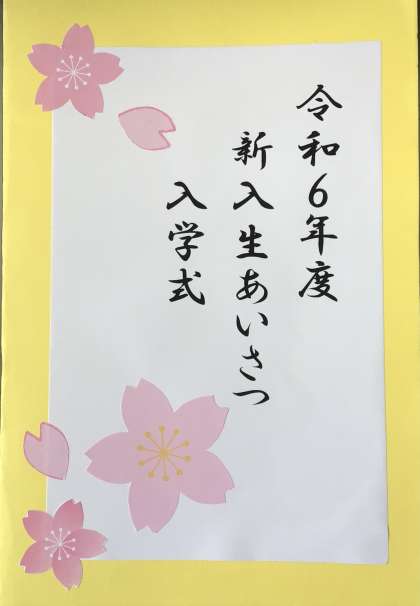 令和6年度
新入生あいさつ
入学式